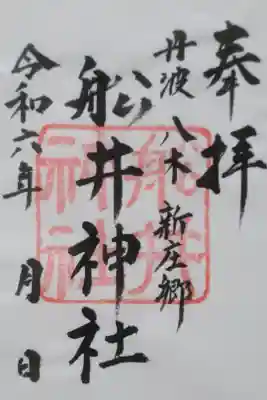 奉拝
丹波 八木 新庄郷
船井神社
令和六年 月 日
船井神社